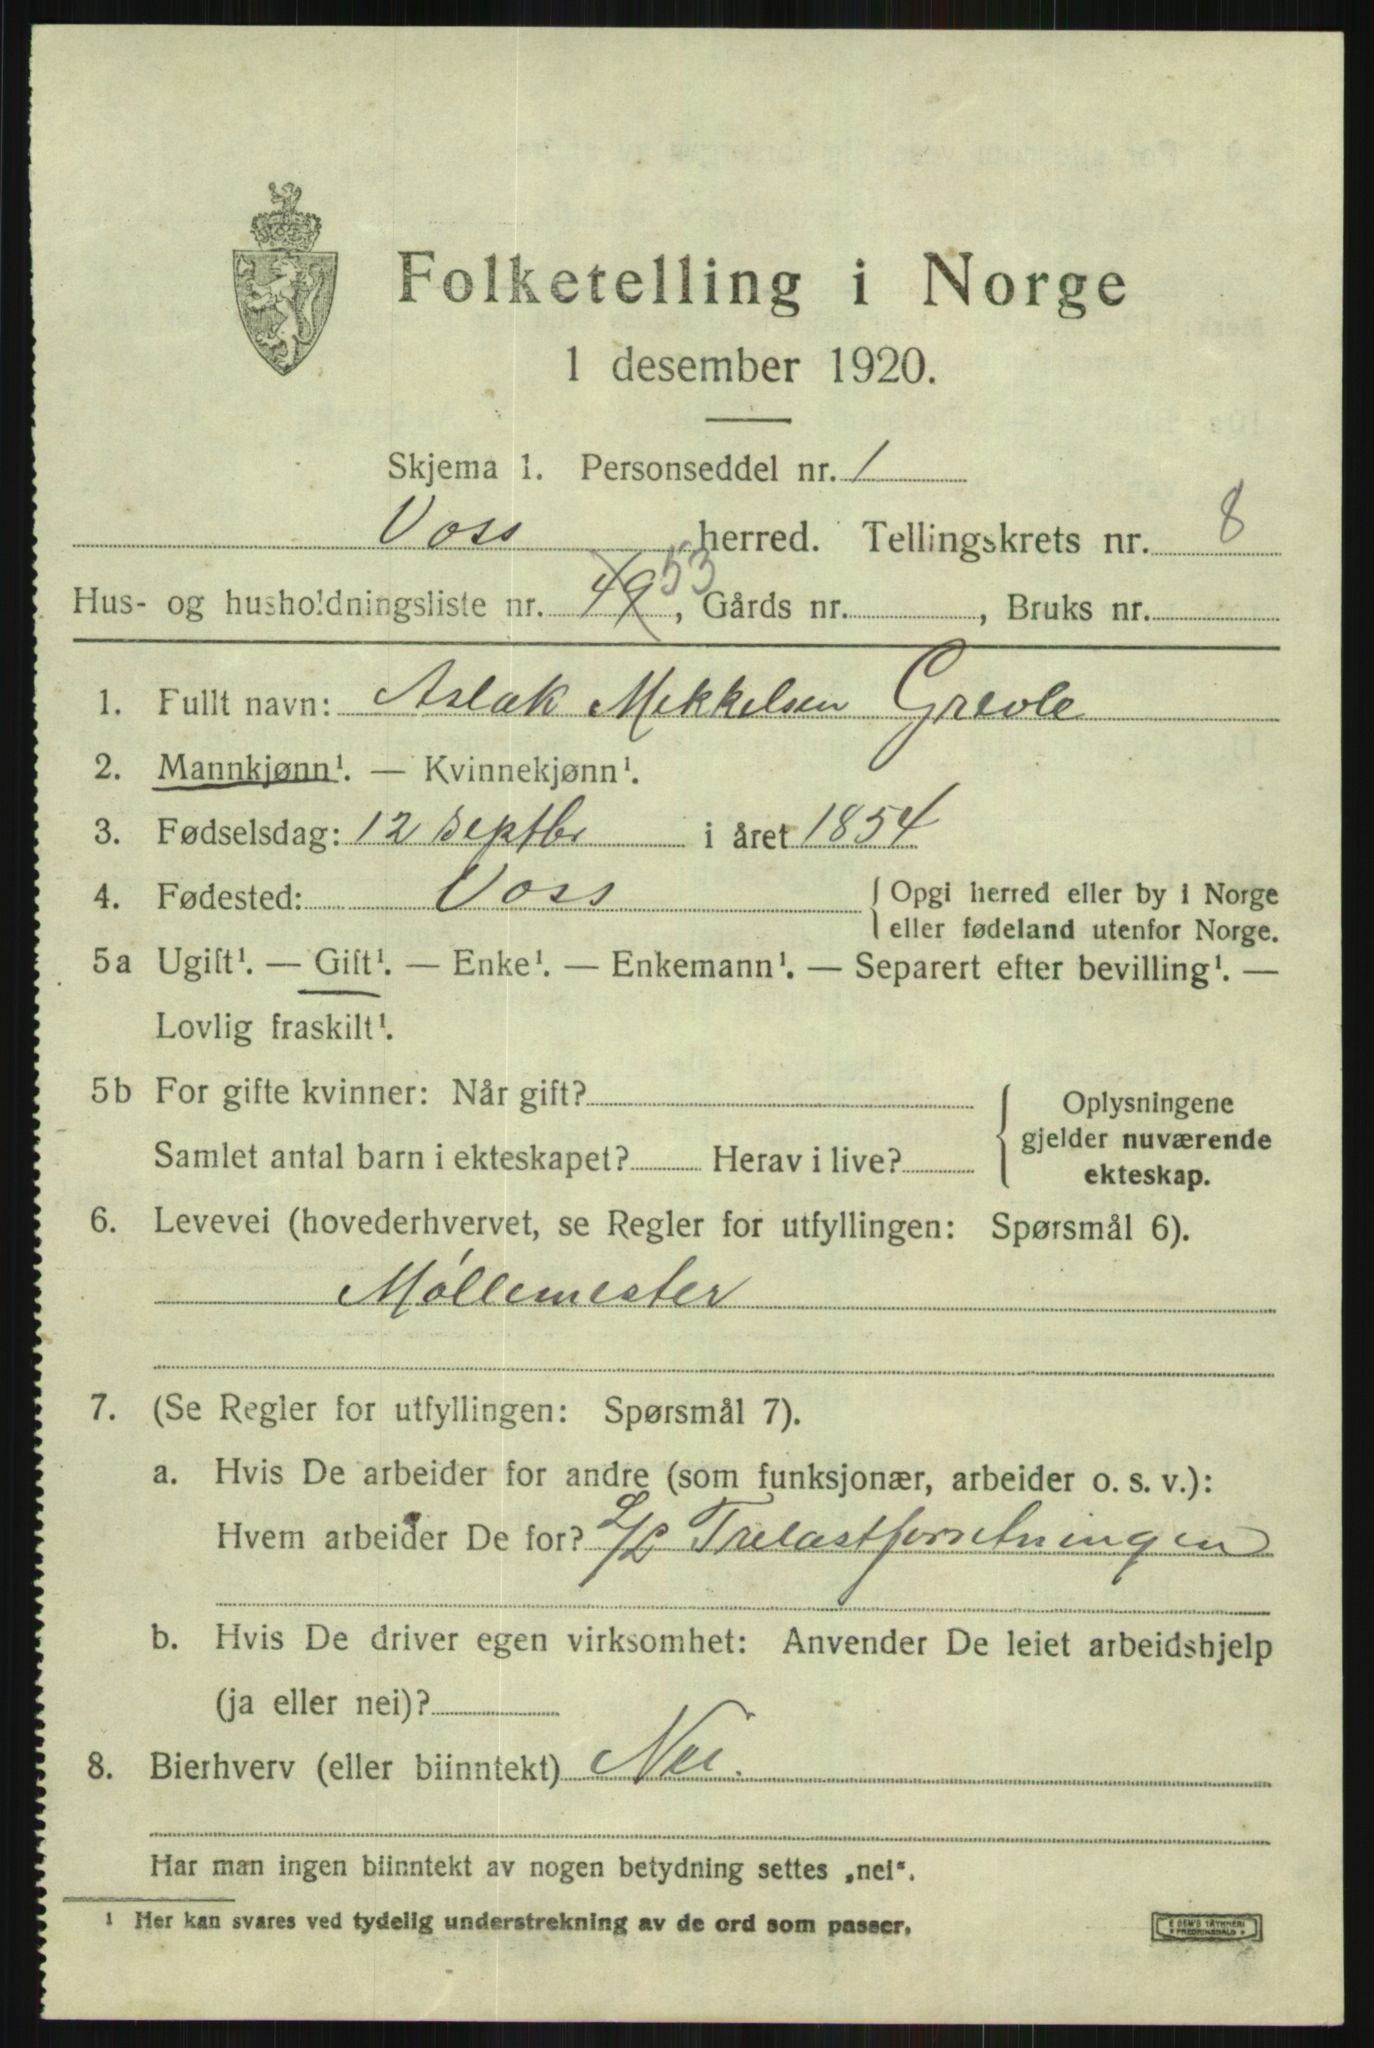 Folketelling i Norge
1 desember 1920.
Skjema 1. Personseddel nr. 1
Voss herred. Tellingskrets nr. 8
Hus- og husholdningsliste nr. 49 53, Gårds nr. , Bruks nr.
1. Fullt navn: Aslak Mekkelsen Grevle
2. Mannkjønn¹. — Kvinnekjønn¹.
3. Fødselsdag: 12 septbr i året 1854
4. Fødested: Voss { Opgi herred eller by i Norge
eller fødeland utenfor Norge.
5a Ugift¹. — Gift¹. — Enke¹. — Enkemann¹. — Separert efter bevilling¹. —
Lovlig fraskilt¹.
5b For gifte kvinner: Når gift? { Oplysningene
gjelder nuværende
Samlet antal barn i ekteskapet? Herav i live?
ekteskap.
6. Levevei (hovederhvervet, se Regler for utfyllingen: Spørsmål 6).
Møllemester
7. (Se Regler for utfyllingen: Spørsmål 7).
a. Hvis De arbeider for andre (som funksjonær, arbeider o. s. v.):
Hvem arbeider De for? Trelastforretningen
b. Hvis De driver egen virksomhet: Anvender De leiet arbeidshjelp
(ja eller nei)?
8. Bierhverv (eller biinntekt) Nei.
Har man ingen biinntekt av nogen betydning settes „nei“.
¹ Her kan svares ved tydelig understrekning av de ord som passer.